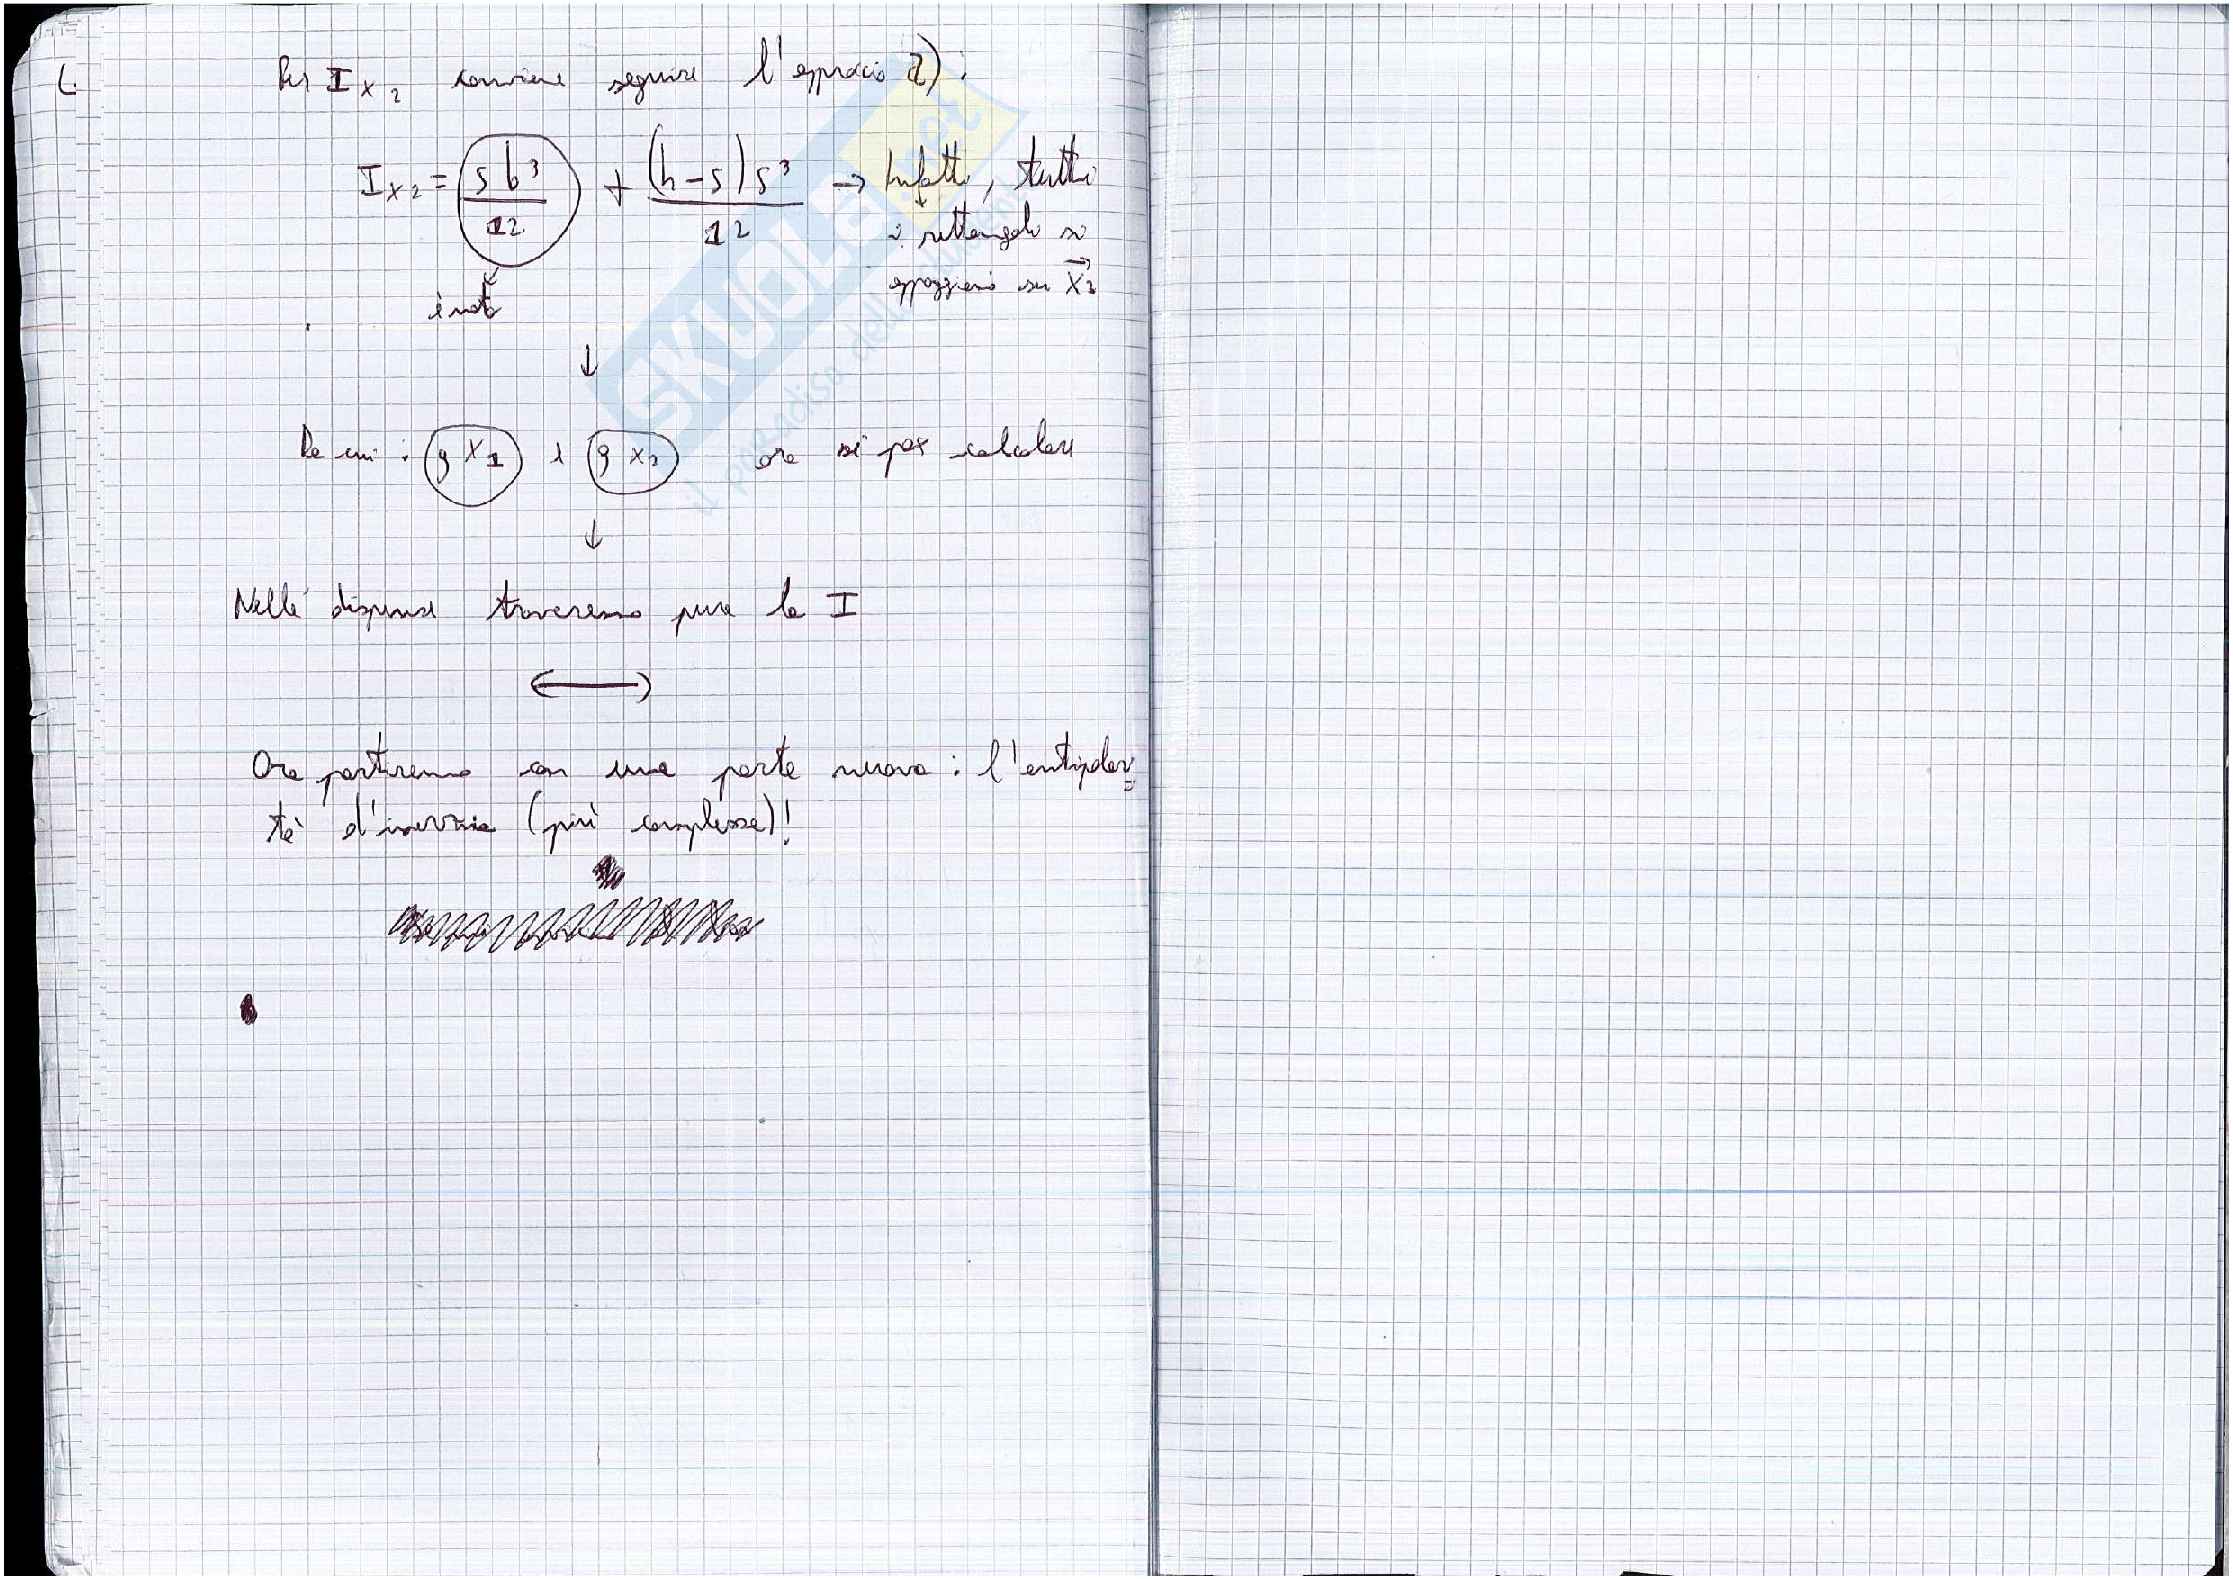 Per I x₂ conviene seguire l'approccio 2):
I x₂ = s b³ / 12 + (h-s) s³ / 12 → Infatti, tutti
i rettangoli si
appoggiano su x₂
è nota
↓
Da cui: ρ x₁ e ρ x₂ ora si può calcolare
↓
Nelle dispense troveremo pure la I
Ora partiremo con una parte nuova: l'antipolari
tà d'inerzia (più complessa)!
SKUOLA.net
il paradiso dello studente